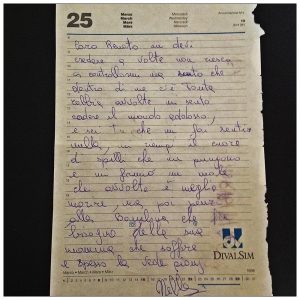 25
Caro Renato mi devi
credere a volte non riesco
a controllarmi ma sento che
dentro di me c'è tanta
rabbia avvolte mi sento
cadere il mondo addosso,
e sei tu che mi fai sentire
nulla, mi riempi il cuore
di spilli che mi pungono
e mi fanno un male
che avvolte è meglio
morire ma poi penso
alla bambina che
bisogno della sua
mamma che soffre
e spesso la vede
DIVALSIM